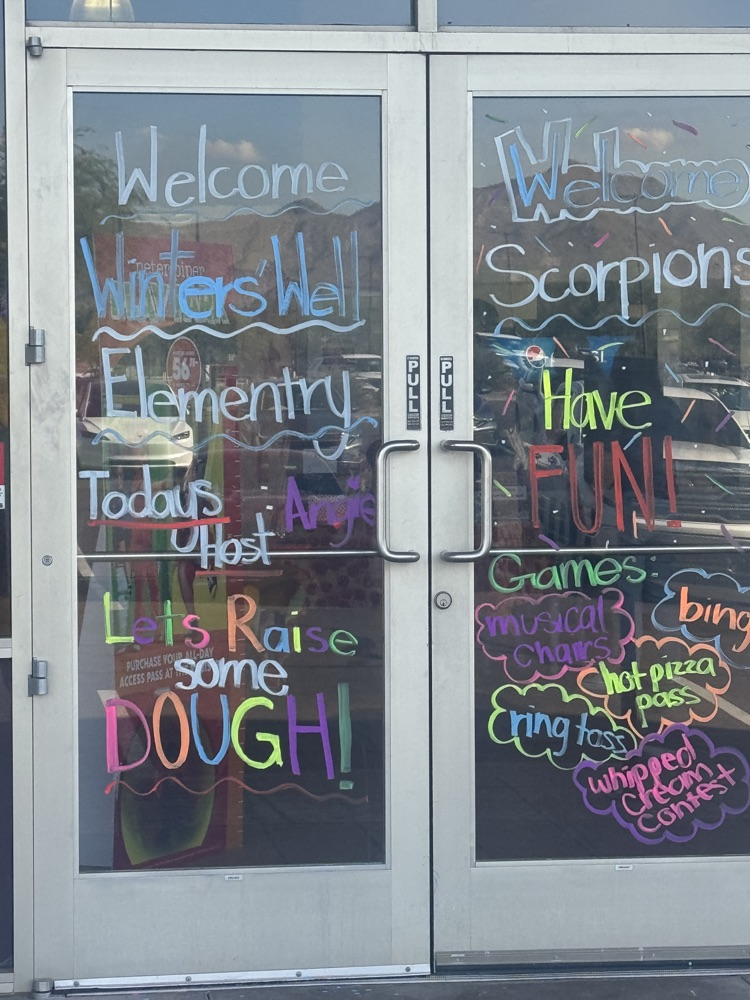 Welcome
Winters' Well
Elementry
Todays
Host Angie
Lets Raise
some
DOUGH!
PULL
PULL
peter piper
56
PURCHASE YOUR ALL-DAY
Welcome
Scorpions
Have
FUN!
Games:
musical
chairs
bing
hot pizza
pass
ring toss
whipped
cream
contest